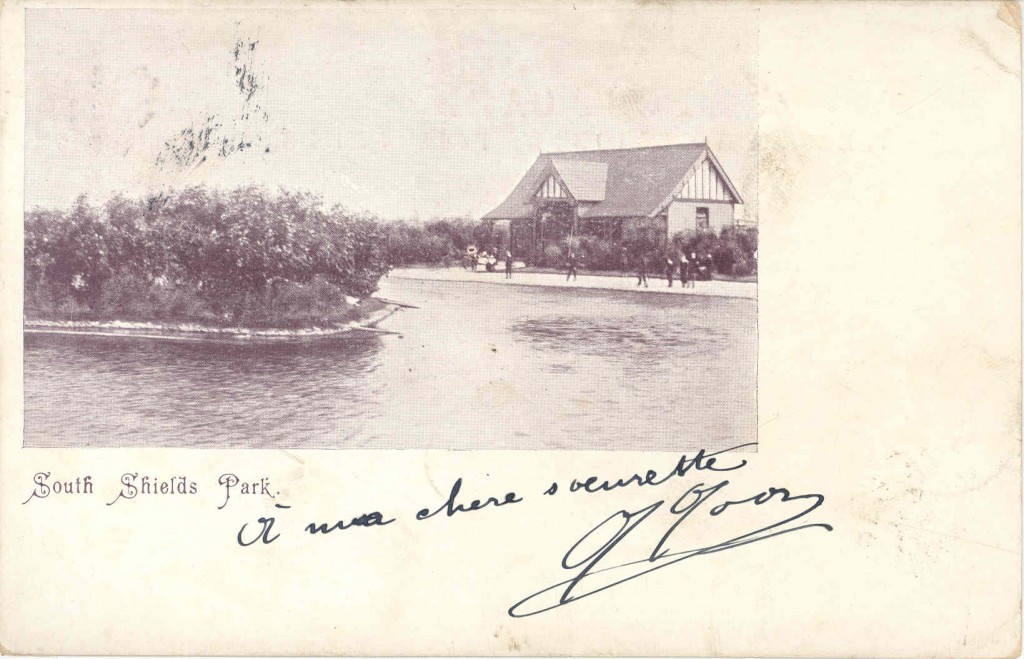 South Shields Park.
À ma chère soeurette